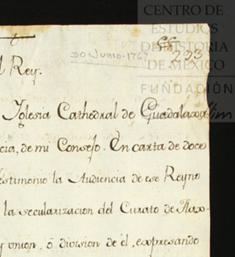 CENTRO DE
ESTUDIOS
DE HISTORIA
DE MEXICO
FUNDACIÓN
30 Junio-176
l Rey.
Iglesia Cathedral de Guadalax
cia, de mi Consejo. En carta de doce
estimonio la Audiencia de ese Reyno
la secularizacion del Curato de Tlax-
y union, ó division de él, expresando